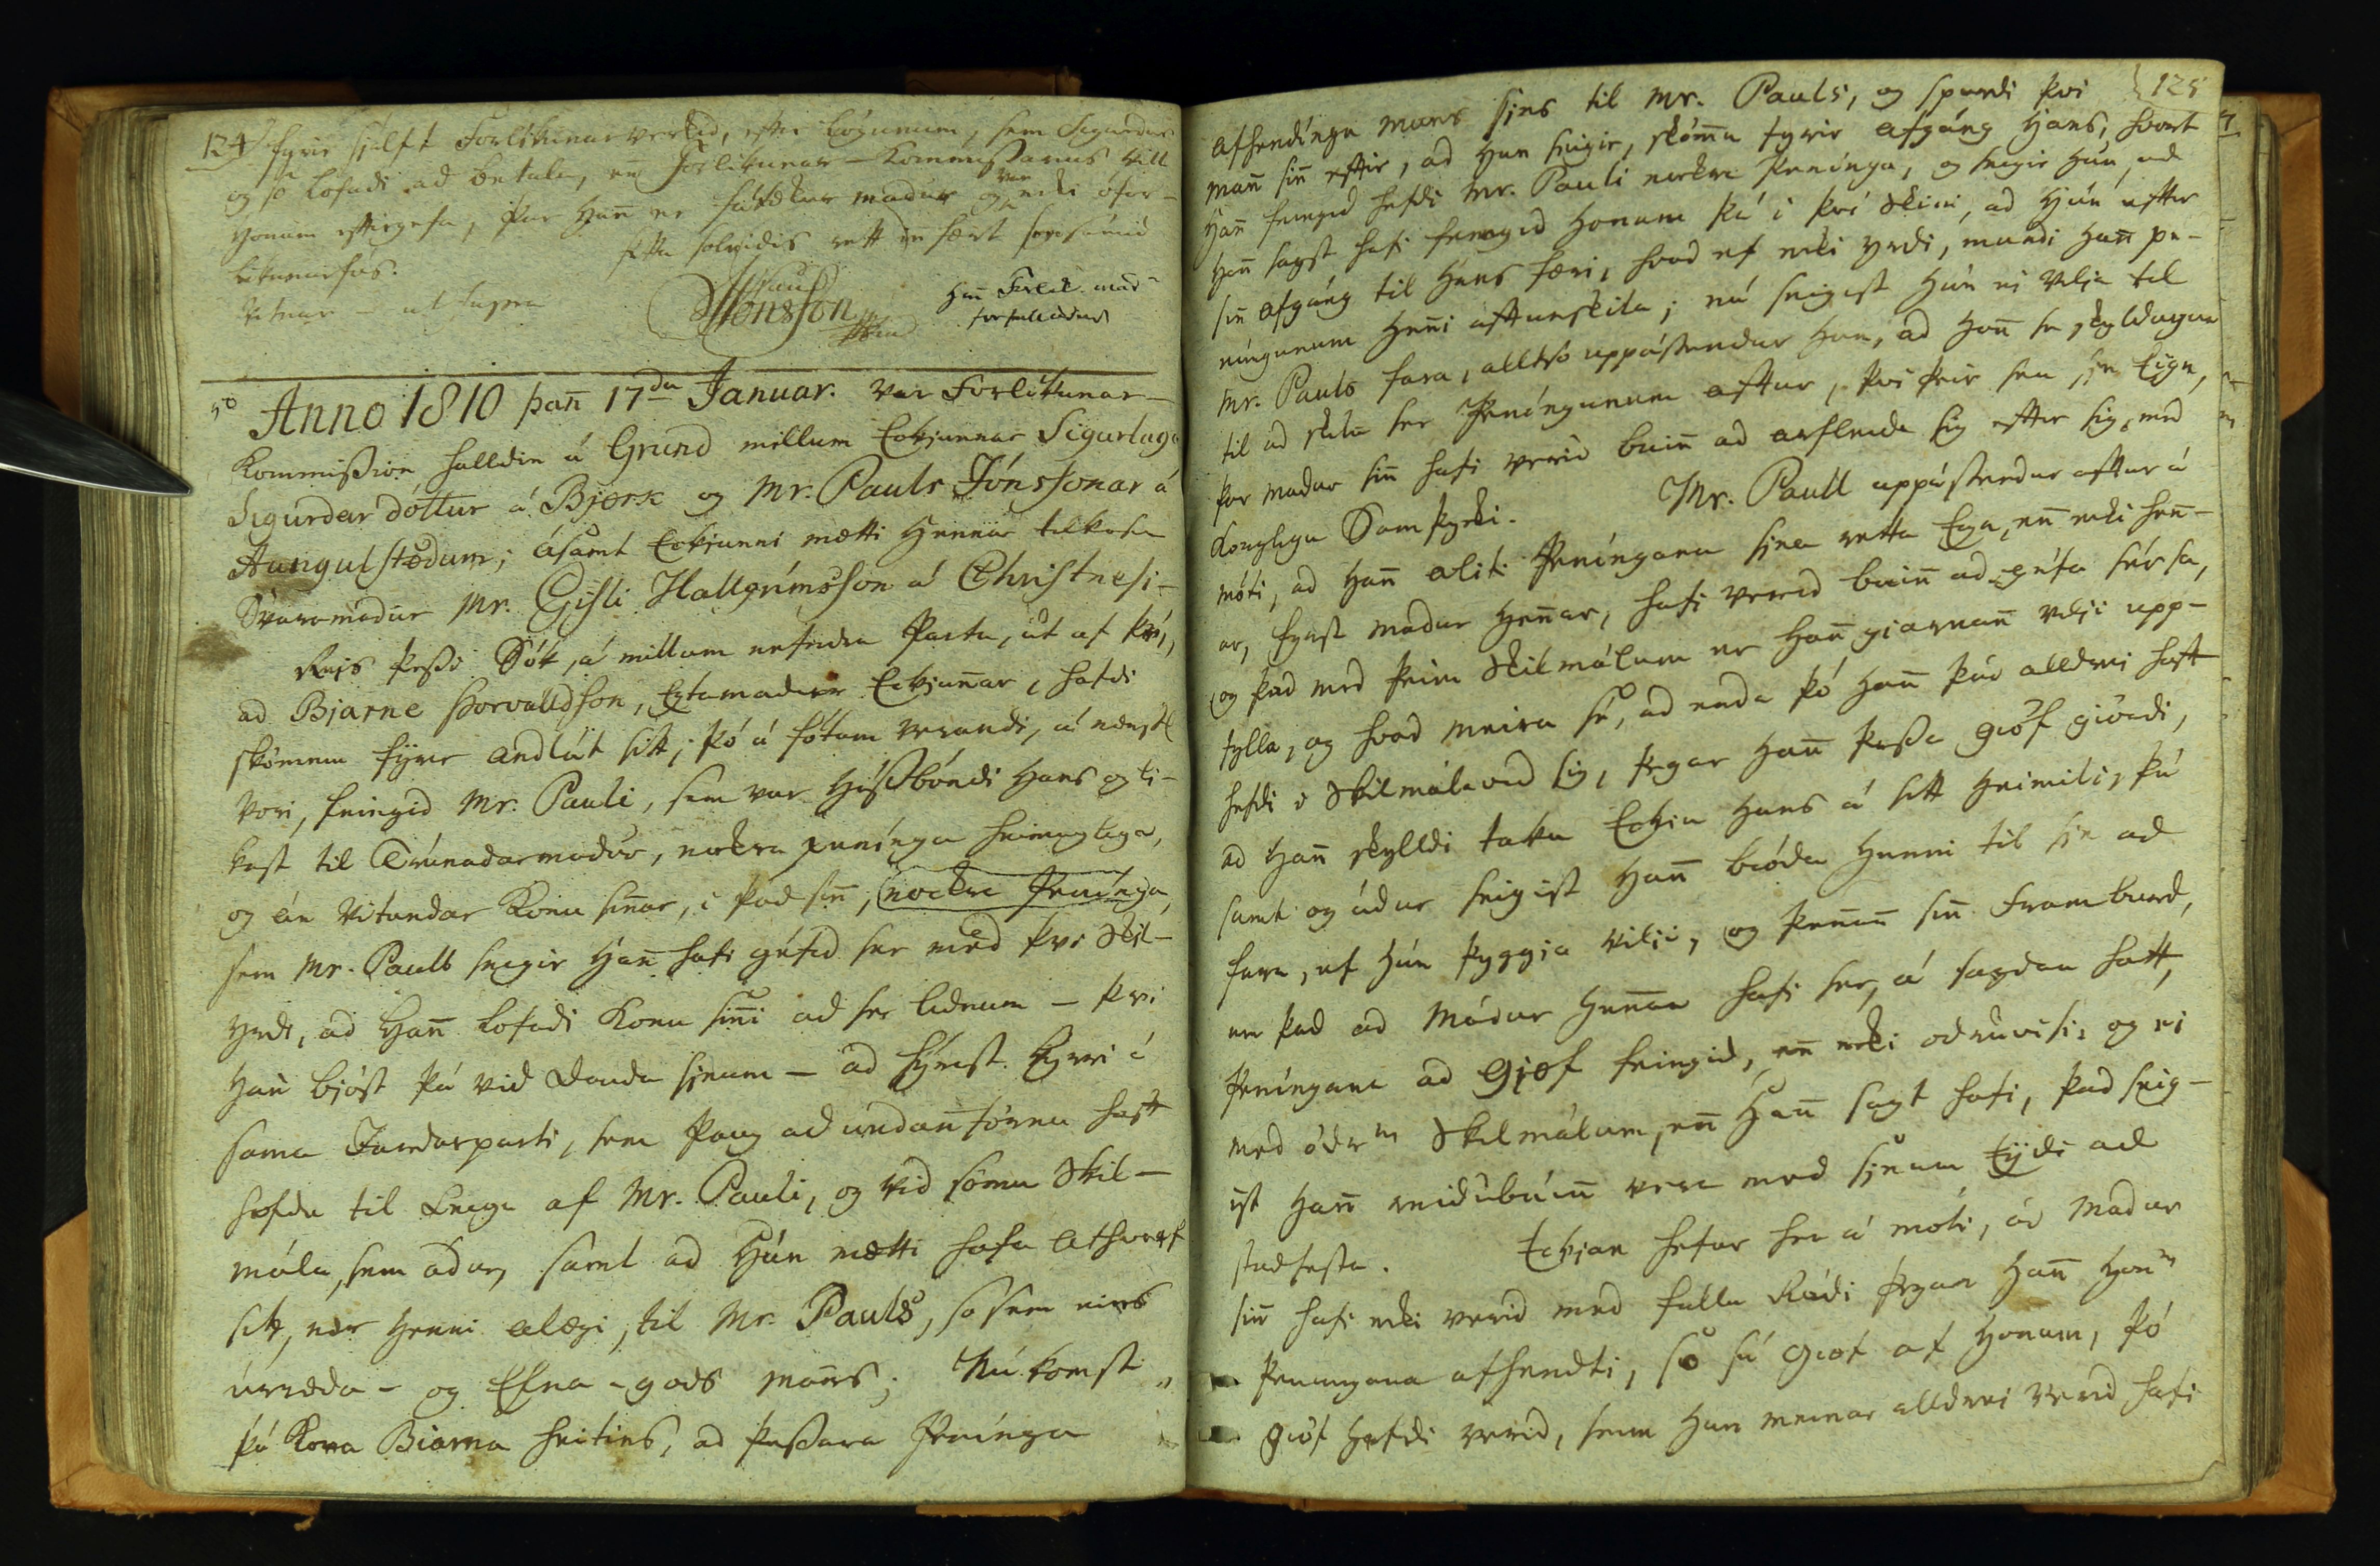 124
fyrir sjálft Forlíkunarverkid, eftir lögunum, sem Sigurdur
og so lofadi ad betala, en Forlíkunar-Kommissarius vill
honum eftirgefa, þar hann er fátækur madur og var ecki ófor-
líkunarfús.
Vitnar - ut supra
Paul
Jónsson
50 Anno 1810 þan̄ 17da Januar. var Forlikunar-
Kommission halldin á Grund millum Eckjunnar Sigurlaug
Sigurdardóttur á Bjørk og Mr. Pauls Jónssonar á
Aungulstødum; ásamt Eckjunni mætti hennar tilkosen
Svaramadur Mr. Gisli Hallgrímsson á Christnesi-
Reis þessi Sök, á millum nefndra Parta, út af því,
ad Bjarne Þorvalldsson, Egtamadur Eckjun̄ar, hafdi
skömmu fyrir andlát sitt, þó á fótum verandi, á næstl
vori, feingid Mr. Pauli, sem var Hússbóndi hans og ti-
kost til Trúnadarmadur, nockra penínga heimuglega,
og án vitundar Konu sin̄ar, i þad sin̄, nockra Penínga,
sem Mr. Paull seigir han̄ hafi géfid sér med því Skil-
yrdi, ad han̄ lofadi Konu sin̄i ad sér lidnum - því
han̄ bjóst þá vid Dauda sínum - ad hýrast kyrri á
sama Jardarparti, sem þaug ad undan förnu haft
høfdu til Leigu af Mr. Pauli, og vid sömu Skil-
mála, sem ádur, samt ad Hún mætti hafa athvarf
sitt, nær henni alægi, til Mr. Pauls, so sem eins
úrræda- og Efna-gods man̄s; Nú komst
þó Kona Biarna heitins, ad þessara Penínga
125
afhendíngu man̄s síns til Mr. Pauls, og spurdi því
man̄ sin̄ eftir, ad hun seigir, skömmu fyrir afgáng hans, hvort
Han̄ feingid hefdi Mr. Pauli nockra Penínga, og seigir hún, ad
Han̄ sagst hafi feingid honum þá i því skini, ad Hún eftir
sin̄ afgáng til hans færi, hvad ef ecki yrdi, mundi han̄ pe-
níngunum hen̄i afturskila; nú seigist Hún ei vilja til
Mr. Pauls fara, alltsó uppástendur hun, ad han̄ se skyldugur
til ad skila sér Peníngunum aftur, því þeir seu sín Eign,
þar madur sin̄ hafi verid búin̄ ad arfleida sig eftir sig, med
Konglegu Samþycki. Mr. Paull uppástendur aftur á
móti, ad han̄ áliti Peníngana sína retta Eign, en̄ ecki hen̄-
ar, fyrst madur hen̄ar, hafi verid búin̄ ad géfa sér þa,
og þad med þeim Skilmálum er han̄ gjarnan̄ vilji upp-
fylla, og hvad meira sé, ad enda þó han̄ þad alldrei haft
hefdi i Skilmála vid sig, þegar han̄ þessa giöf giördi,
ad han̄ skylldi taka Eckju hans á sitt heimili, þá
samt og ádur seigist han̄ bióda henni til sín ad
fara, ef hún þyggja vilji, og þen̄an̄ sin̄ Framburd,
um þad ad Madur hen̄ar hafi sér, á sagdan hátt,
Peníngana ad Gjøf feingid, en̄ ecki ödruvísi, og ei
med ödrum Skilmálum, en̄ Han̄ sagt hafi, þad seig-
ist han̄ reidubúin̄ vera med sínum Eydi ad
stadfesta. Eckjan hefur her á móti, ad Madur
sin̄ hafi ecki verid med fullu Rádi þegar han̄ honum
Peningana afhendti, so sú gjöf af honum, þó
giöf hefdi verid, sem hun meinar alldrei verid hafi